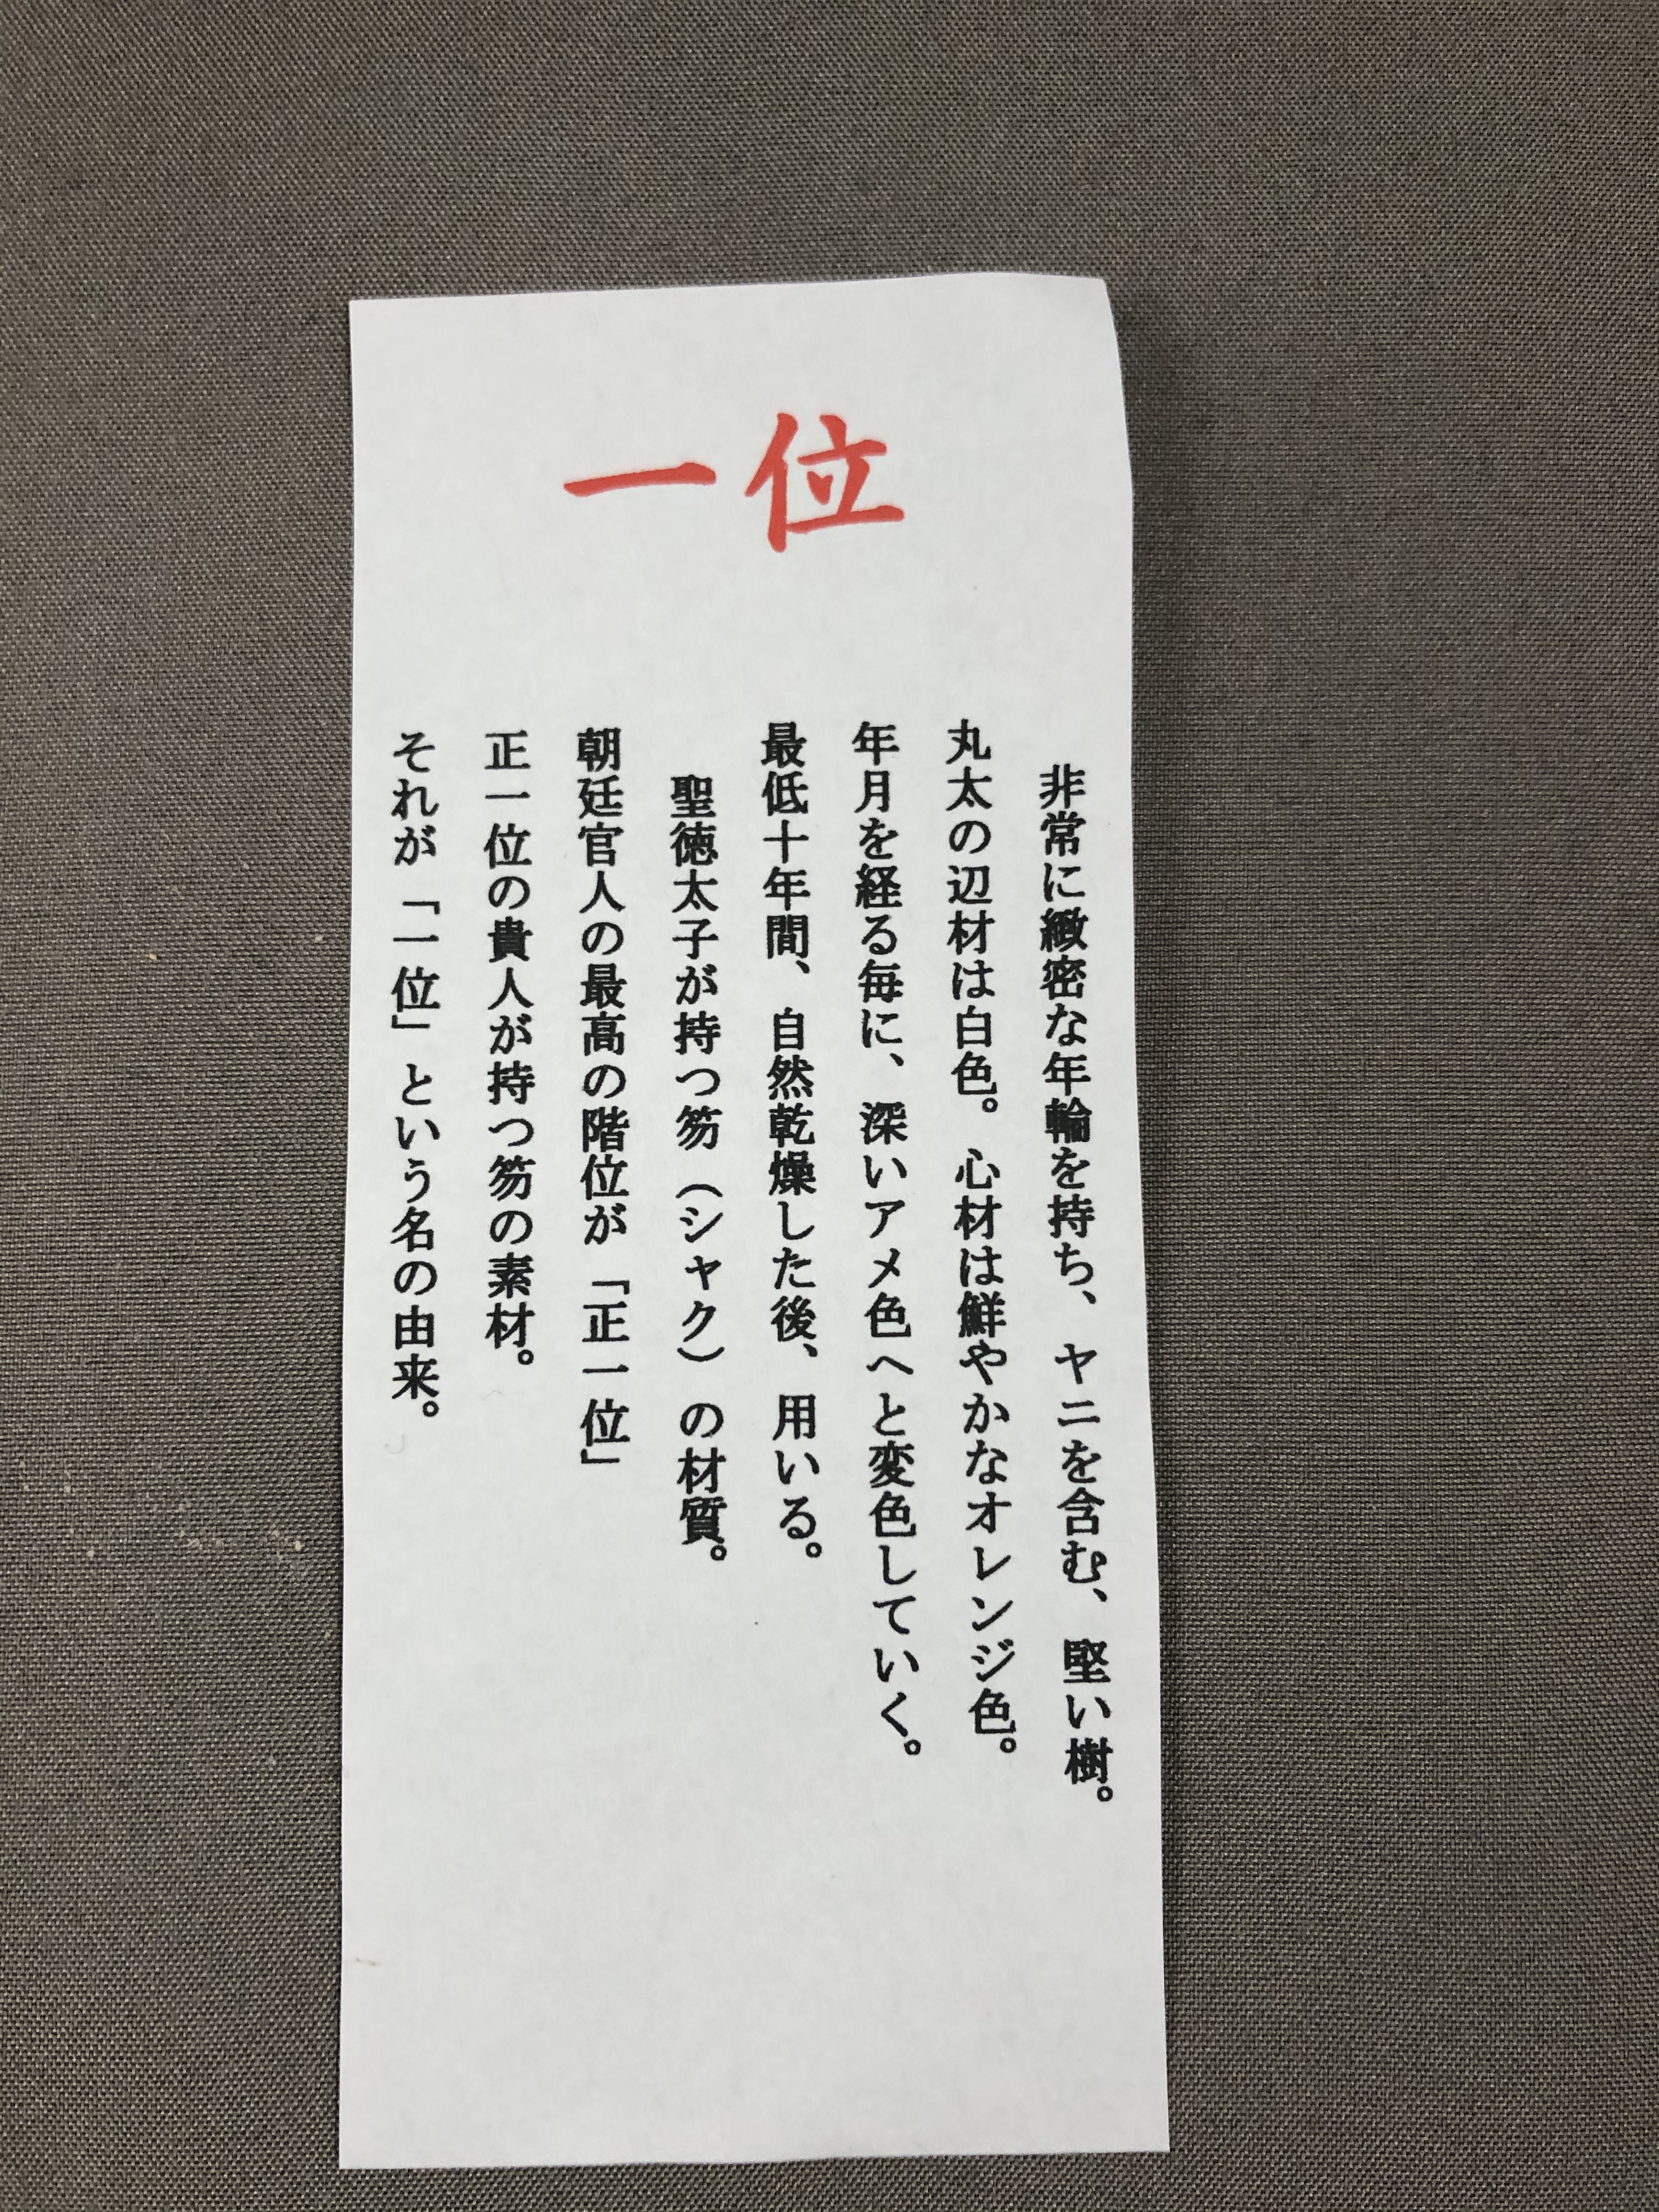 一位
非常に緻密な年輪を持ち、ヤニを含む、堅い樹。
丸太の辺材は白色。心材は鮮やかなオレンジ色。
年月を経る毎に、深いアメ色へと変色していく。
最低十年間、自然乾燥した後、用いる。
聖徳太子が持つ笏（シャク）の材質。
朝廷官人の最高の階位が「正一位」
正一位の貴人が持つ笏の素材。
それが「一位」という名の由来。